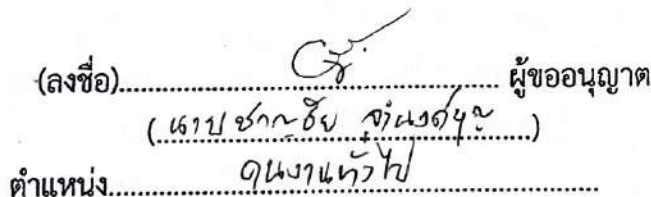 (ลงชื่อ)................................................ผู้ขออนุญาต
(นายชาญชัย จำนงค์บุญ)
ตำแหน่ง.....คนงานทั่วไป.....